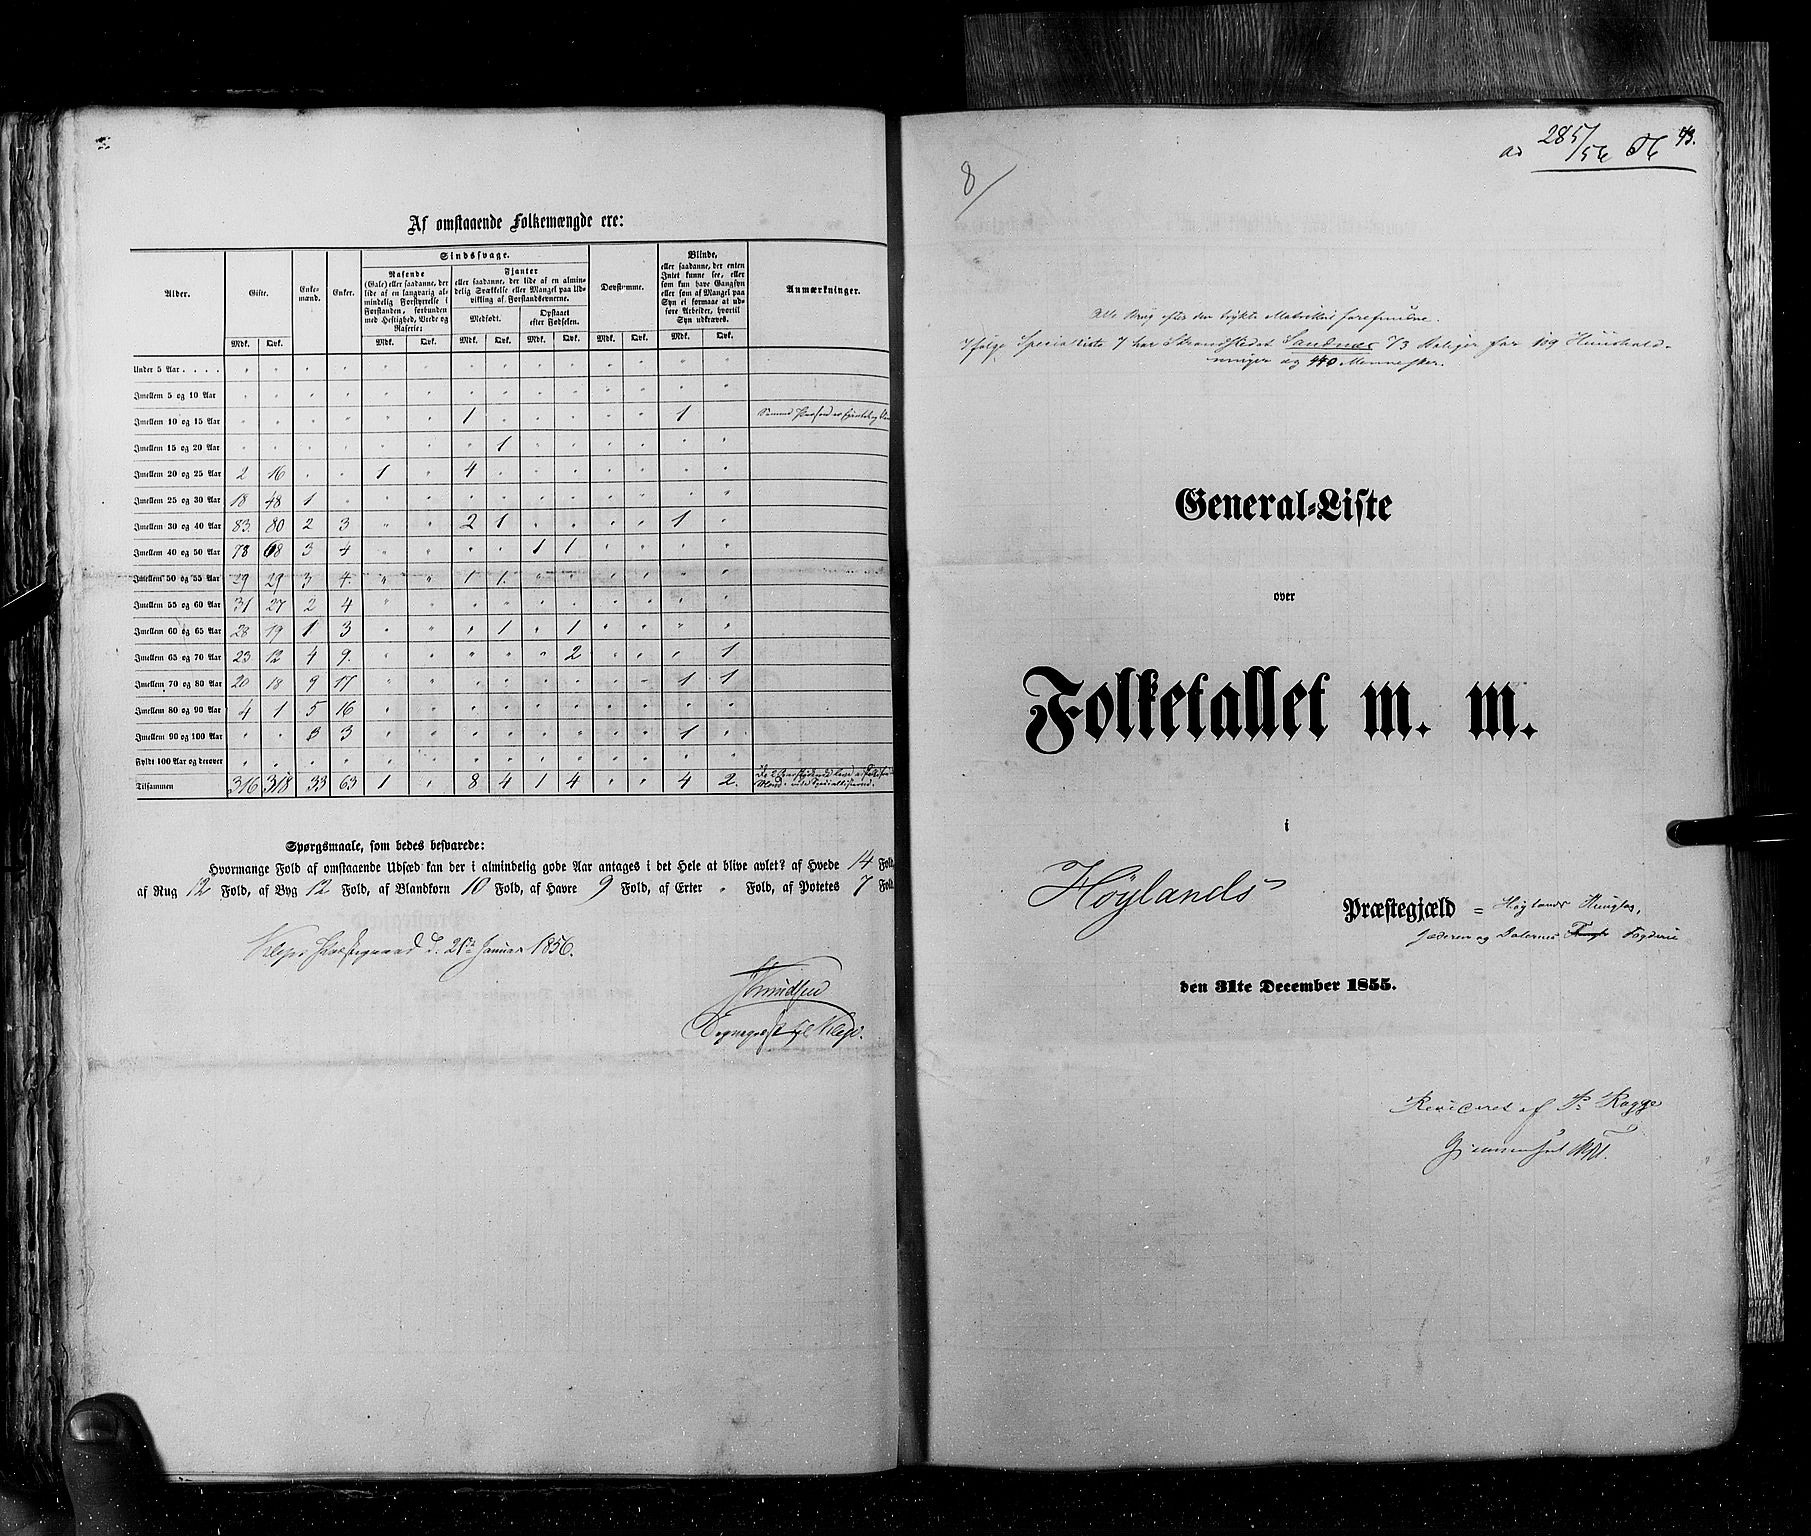 Af omstaaende Folkemængde ere:
Alder. Gifte. Enke-mænd. Enker. Sindssvage. Døvstumme. Blinde, Anmærkninger.
Rasende
(Gale) eller saadanne, der
lide af en langvarig al-
mindelig Forstyrrelse i
Forstanden, forbunden
med Heftighed, Vrede og
Raserie:
Fjanter
eller saadanne, der lide af en almin-
delig Svækkelse eller Mangel paa Ud-
vikling af Forstandsevnerne.
Medfødt. Opstaaet
efter Fødselen.
eller saadanne, der enten
Intet kunne see, eller
som kun have Gangsyn
eller som af Mangel paa
Syn ei formaae at ud-
føre Arbeider, hvortil
Syn udkræves.
Mdk. Qvk. Mdk. Qvk. Mdk. Qvk. Mdk. Qvk. Mdk. Qvk. Mdk. Qvk.
Under 5 Aar . . . . " " " " " " " " " " " " " "
Imellem 5 og 10 Aar " " " " " " " " " " " " " "
Imellem 10 og 15 Aar " " " " " " 1 " " " " " 1
Imellem 15 og 20 Aar " " " " " " " 1 " " " " " "
Imellem 20 og 25 Aar 2 16 " " 1 " 4 " " " " " " "
Imellem 25 og 30 Aar 18 48 1 " " " " " " " " " " "
Imellem 30 og 40 Aar 83. 80 2 3 " " 2 1 " " " " 1 "
Imellem 40 og 50 Aar 78 68 3 4 " " " " 1 1 " " " "
Imellem 50 og 55 Aar 29 29 3 4. " " 1 1. " " " " " "
Imellem 55 og 60 Aar 31 27 2 4 " " " " " " " " " "
Imellem 60 og 65 Aar 28 19 1 3 " " " 1 " 1 " " " "
Imellem 65 og 70 Aar 23 12 4 9. " " " " " 2 " " " 1
Imellem 70 og 80 Aar 20 18 9 17 " " " " " " " " 1 1
Imellem 80 og 90 Aar 4 1 5 16 " " " " " " " " " "
Imellem 90 og 100 Aar " " 3 3 " " " " " " " " 1 "
Fyldt 100 Aar og derover " " " " " " " " " " " " " "
Tilsammen 316 318 33 63 1 " 8 4 1 4 " " 4 2.
Spørgsmaale, som bedes besvarede:
Hvormange Fold af omstaaende Udsæd kan der i almindelig gode Aar antages i det Hele at blive avlet? af Hvede 14 Fold,
af Rug 12 Fold, af Byg 12 Fold, af Blandkorn 10 Fold, af Havre 9 Fold, af Erter " Fold, af Potetes 7 Fold.
Kleps Præstegaard d. 21de Januar 1856.
Knudsen
Sognepræst til Klep.
8/
ad 285/56 43.
Alle Brug efter den trykte Matrikkel forefundne.
Ifølge Specialliste 7 har Strandstedet Sandnæs 73 Boliger for 119 Huushold-
ninger og 440 Mennesker.
General-Liste
over
Folketallet m. m.
i
Høylands Præstegjæld = Høylands Thinglag,
Jæderen og Dalernes Fogderie
den 31te December 1855.
Revideret af P. Rogge
Gjennemseet